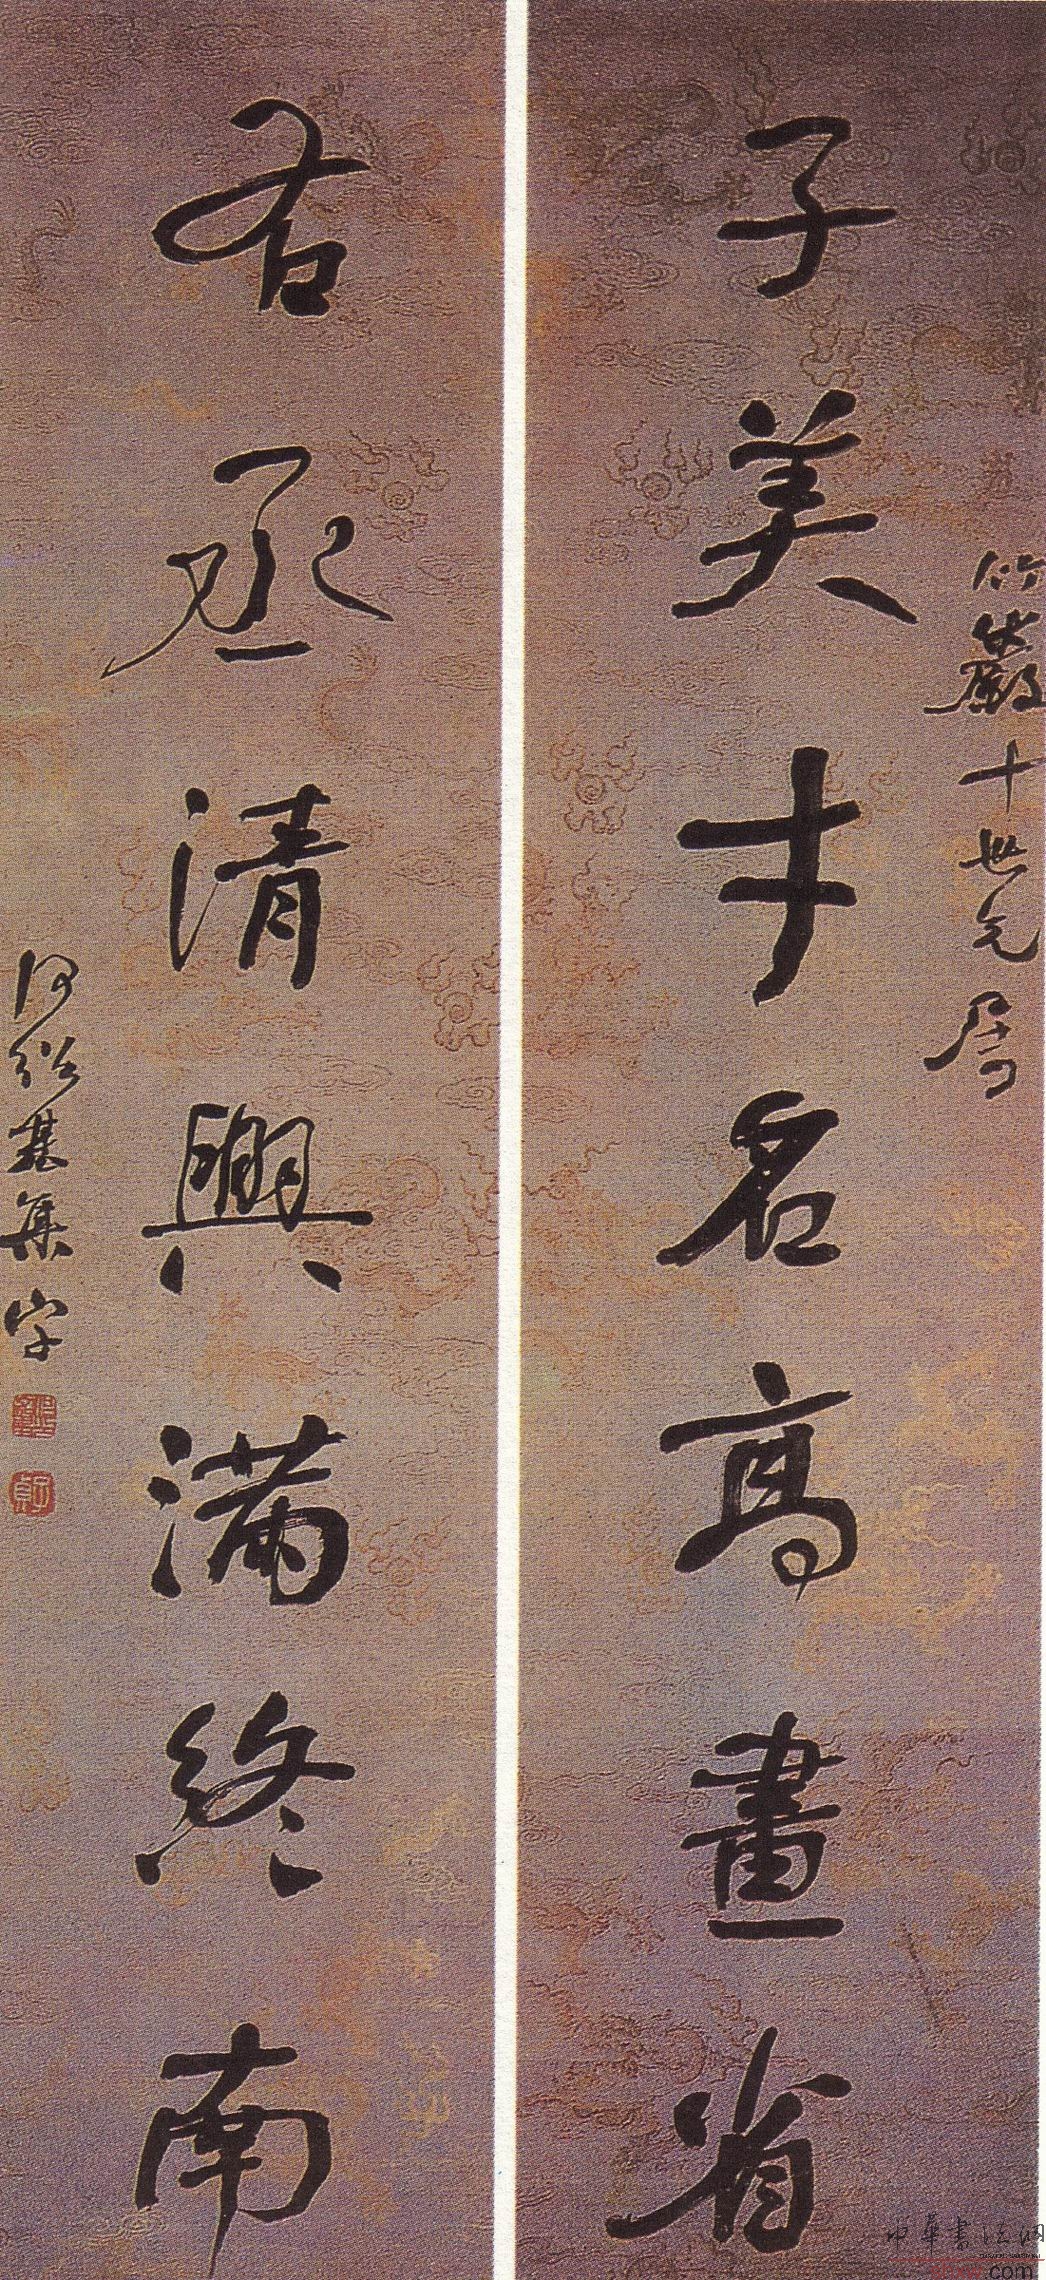 竹巖十世兄屬
子美才名高畫省
右丞清興滿終南
何紹基集字
中華書法網
.com